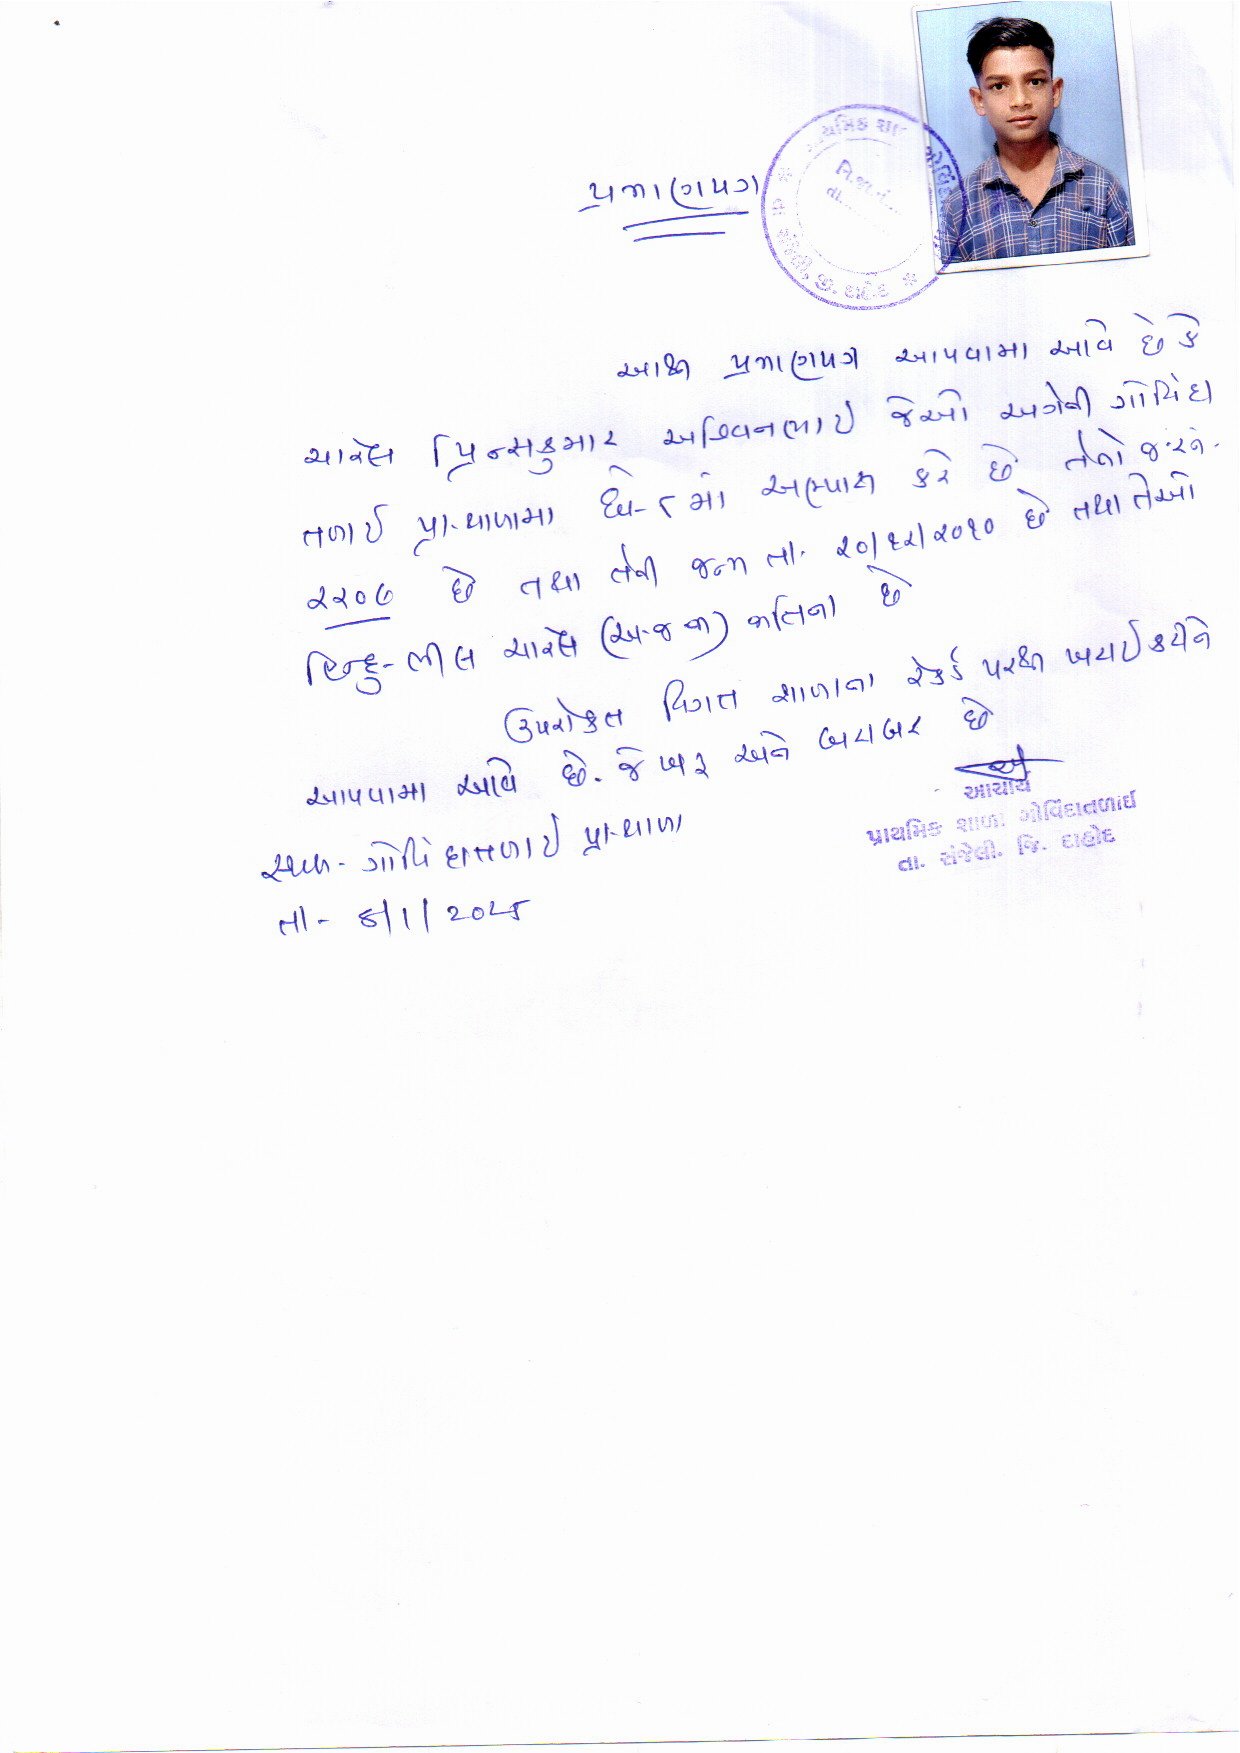 પ્રમાણપત્ર
પ્રાથમિક શાળા ગોવિંદાતળાઈ
તા. સંજેલી, જી. દાહોદ
નિ.જા.નં....
તા.........
આથી પ્રમાણપત્ર આપવામા આવે છે કે
ચારેલ પ્રિન્સકુમાર અશ્વિનભાઈ જેઓ અત્રેની ગોવિંદા
તળાઈ પ્રા.શાળામા ધો-૮ માં અભ્યાસ કરે છે તેનો જ.ર.નં.
૨૨૦૭ છે તથા તેની જન્મ તા. ૨૦/૧૨/૨૦૧૦ છે તથા તેઓ
હિન્દુ-ભીલ ચારેલ (અ.જ.જા) જાતિના છે
ઉપરોક્ત વિગત શાળાના રેકર્ડ પરથી ખરાઈ કરીને
આપવામા આવે છે. જે ખરૂ અને બરાબર છે
સ્થળ - ગોવિંદાતળાઈ પ્રા.શાળા
તા - ૬/૧/૨૦૨૫
આચાર્ય
પ્રાથમિક શાળા ગોવિંદાતળાઈ
તા. સંજેલી. જિ. દાહોદ